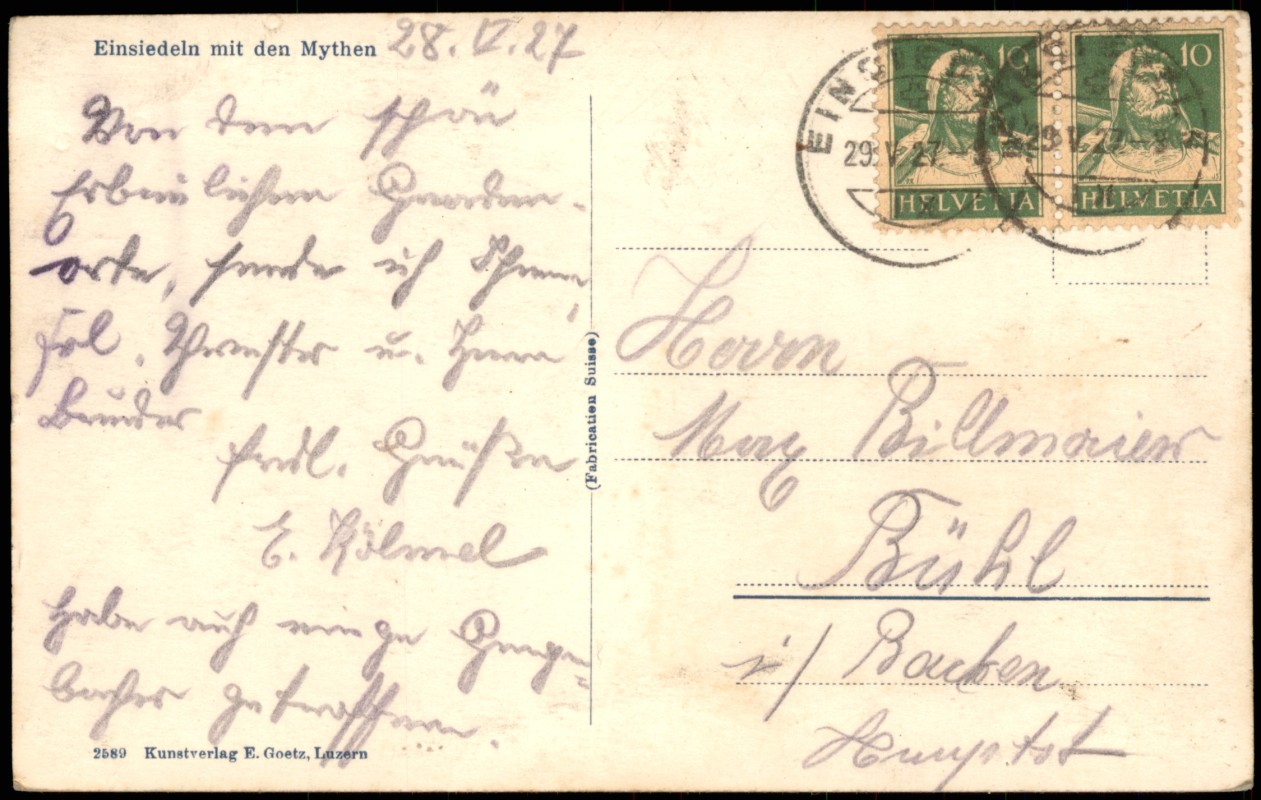 Einsiedeln mit den Mythen 28. V. 27
Von dem schön
Erbaulichen Gnaden-
orte, sende ich Ihnen,
Frl. Schwester u. Herrn
Bruder
frdl. Grüße
E. Kölmel
Habe auch einige
getroffen.
2589 Kunstverlag E. Goetz, Luzern
(Fabrication Suisse)
10 10
HELVETIA HELVETIA
EINSIEDELN
29.V.27 29.V.27-8
Herrn
Max Billmaier
Bühl
i/ Baden
Hauptst